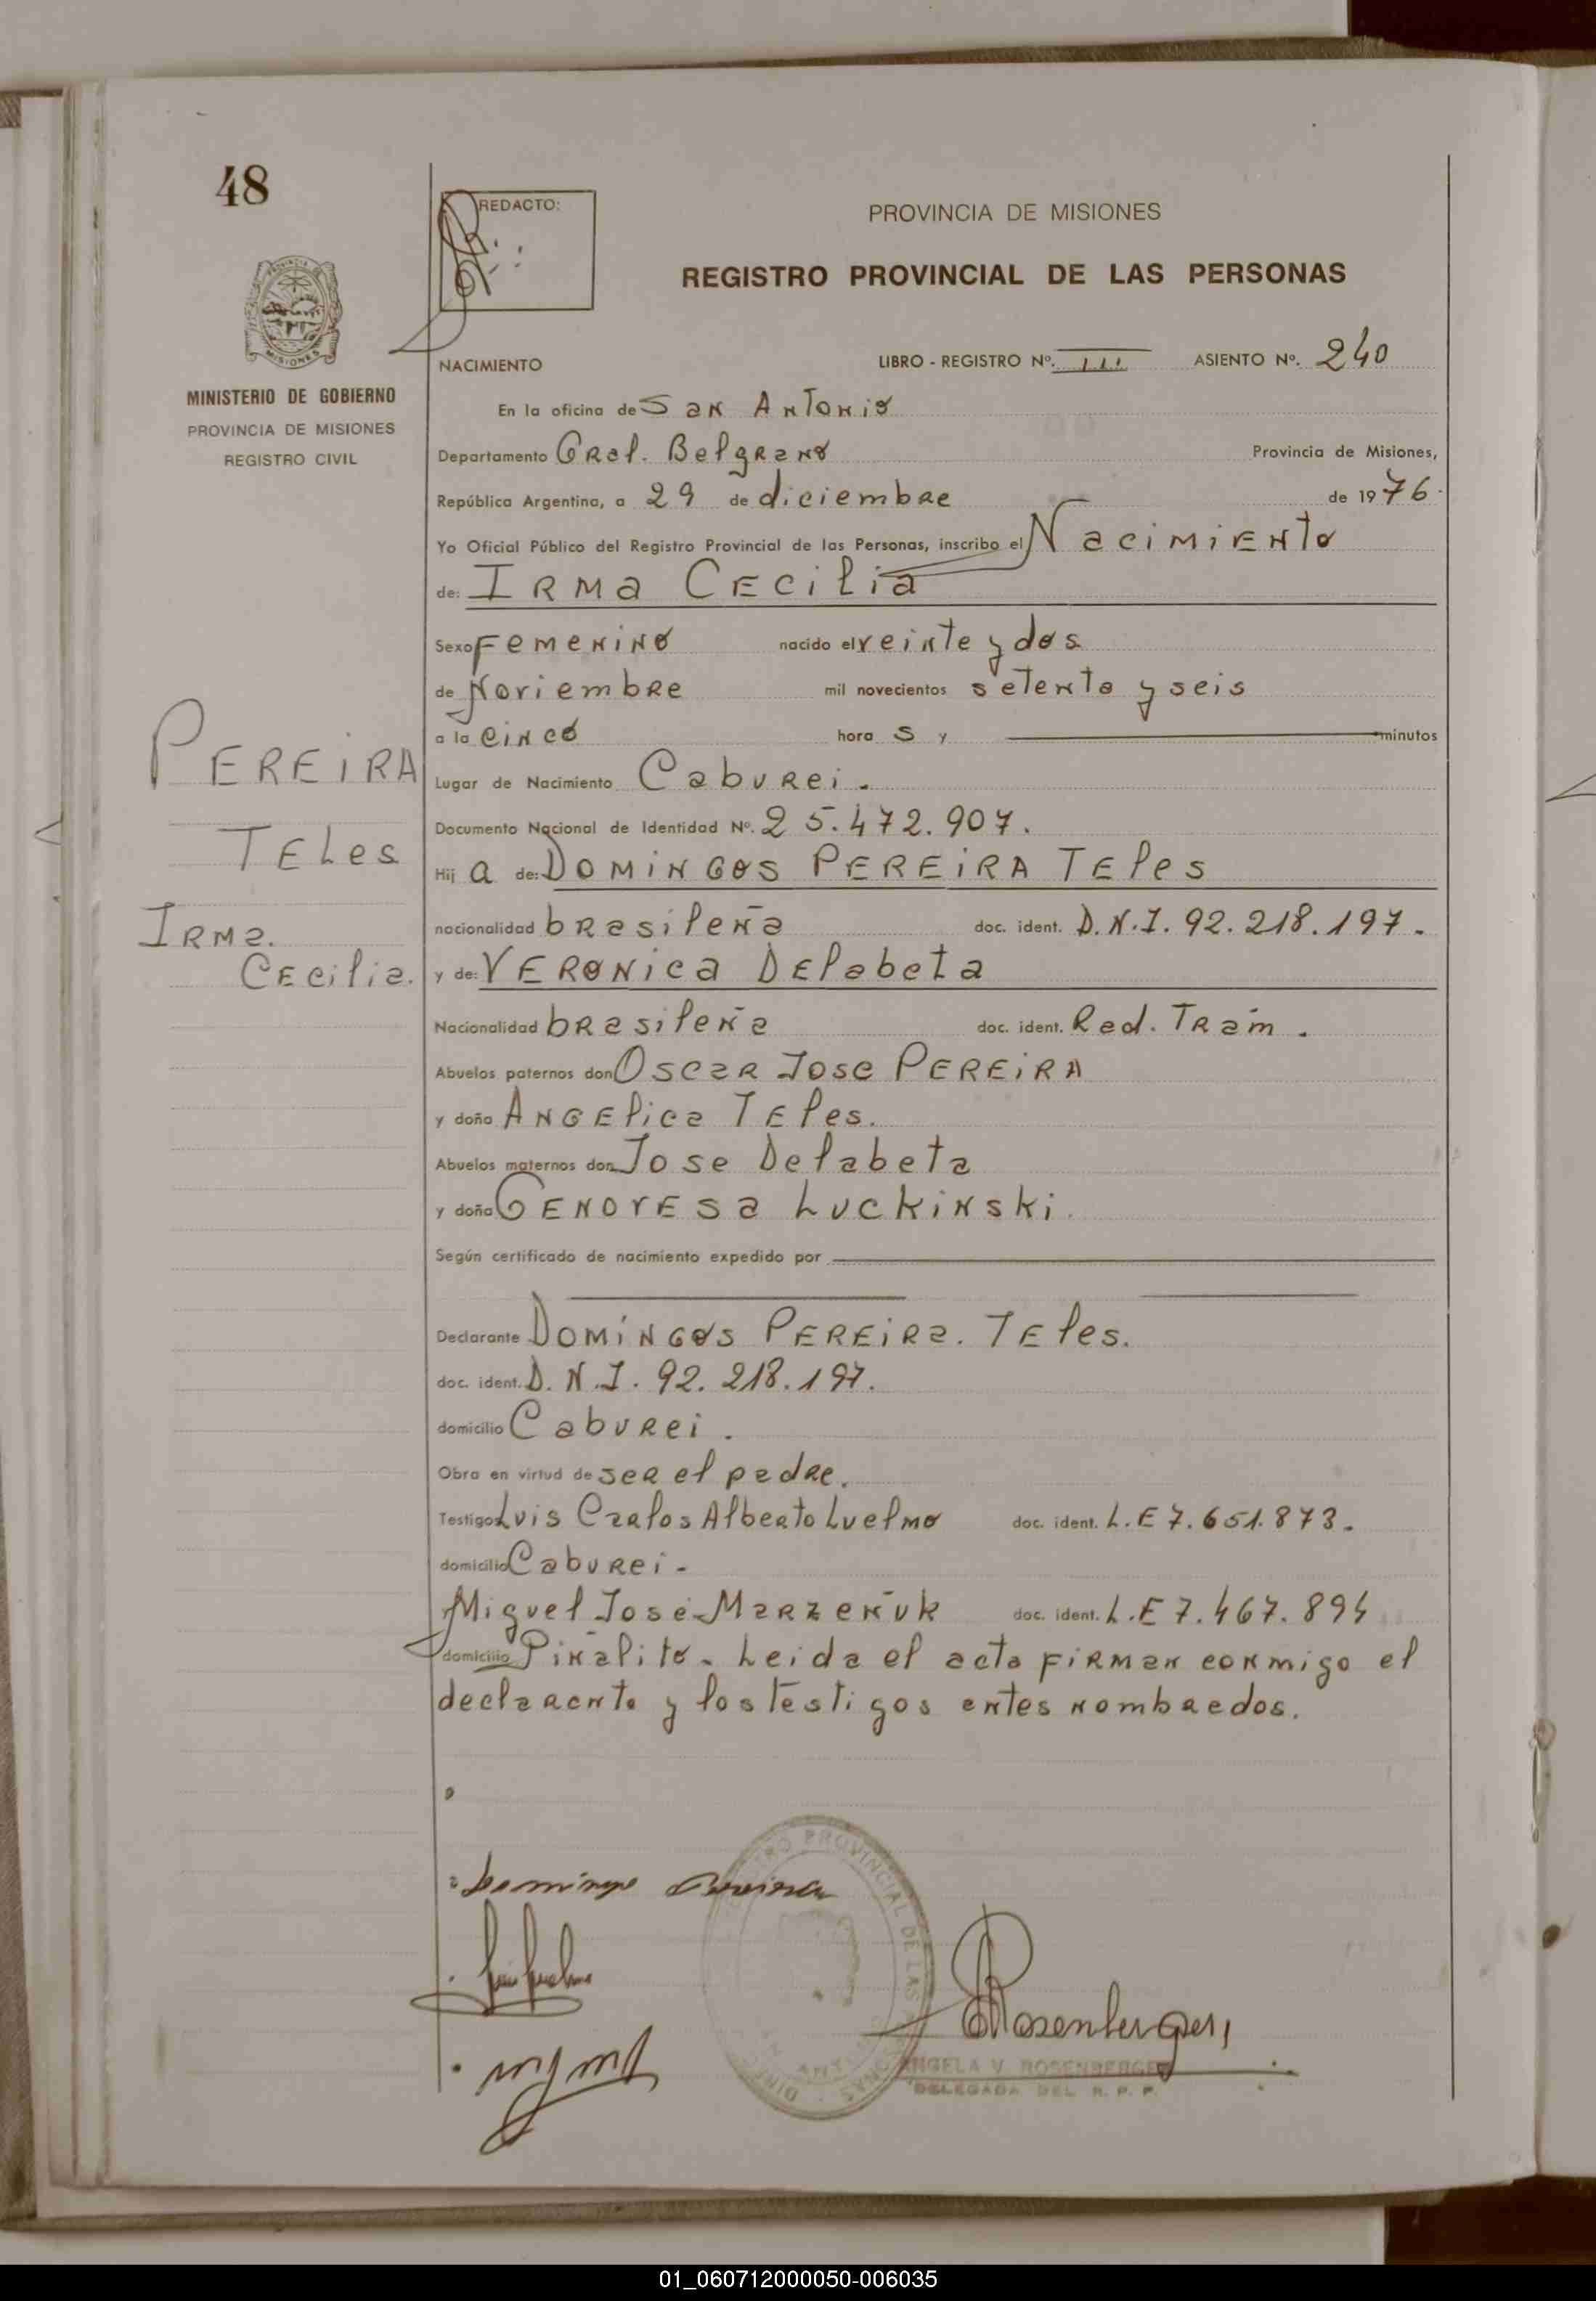 48
REDACTO:
PROVINCIA DE MISIONES
REGISTRO PROVINCIAL DE LAS PERSONAS
MINISTERIO DE GOBIERNO
PROVINCIA DE MISIONES
REGISTRO CIVIL
NACIMIENTO LIBRO - REGISTRO Nº. III ASIENTO Nº. 240
En la oficina de San Antonio
Departamento Gral. Belgrano Provincia de Misiones,
República Argentina, a 29 de diciembre de 1976.
Yo Oficial Público del Registro Provincial de las Personas, inscribo el Nacimiento
de: Irma Cecilia
Sexo Femenino nacido el veinte y dos
de Noviembre mil novecientos setenta y seis
a la cinco hora s y minutos
PEREIRA
TELes
Irma.
Cecilia.
Lugar de Nacimiento Caburei.
Documento Nacional de Identidad Nº. 25.472.907.
Hij a de: DOMINGOS PEREIRA TEles
nacionalidad brasileña doc. ident. D.N.I. 92.218.197.
y de: VERONica DElabeta
Nacionalidad brasileña doc. ident. Rad. Tram.
Abuelos paternos don Oscar Jose PEREIRA
y doña Angelica Teles.
Abuelos maternos don Jose Delabeta
y doña Genovesa Luckinski.
Según certificado de nacimiento expedido por
Declarante Domingos Pereira. Teles.
doc. ident. D.N.I. 92.218.197.
domicilio Caburei.
Obra en virtud de ser el padre.
Testigos Luis Carlos Alberto Luelmo doc. ident. L.E 7.651.873.
domicilio Caburei.
Miguel José Marzeñuk doc. ident. L.E 7.467.894
domicilio Piñalito. Leida el acta firman conmigo el
declarante y los testigos antes nombrados.
Domingo Pereira
Rosenberger
REGISTRO PROVINCIAL DE LAS PERSONAS
ANGELA V. ROSENBERGER
DELEGADA DEL R. P. P.
01_060712000050-006035